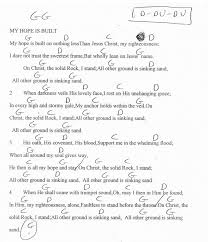 G-G
D-DU-DU
MY HOPE IS BUILT
G D C D
My hope is built on nothing less Than Jesus Christ, my righteousness;
G D C D
I dare not trust the sweetest frame, But wholly lean on Jesus' name.
G C G D
On Christ, the solid Rock, I stand; All other ground is sinking sand,
G C D G
All other ground is sinking sand.
G D C D
2 When darkness veils His lovely face, I rest on His unchanging grace;
G D C D
In every high and stormy gale, My anchor holds within the veil. On
G C G D
Christ, the solid Rock, I stand; All other ground is sinking sand,
G C D G
All other ground is sinking sand.
G D C D
3 His oath, His covenant, His blood, Support me in the whelming flood;
G D
When all around my soul gives way,
C D G C
He then is all my hope and stay. On Christ, the solid Rock, I stand;
G D G C D G
All other ground is sinking sand, All other ground is sinking sand.
G D C D
4 When He shall come with trumpet sound, Oh, may I then in Him be found,
G D C D
In Him, my righteousness, alone, Faultless to stand before the throne. On Christ, the
G C G D
solid Rock, I stand; All other ground is sinking sand, All other ground is sinking
sand.
G